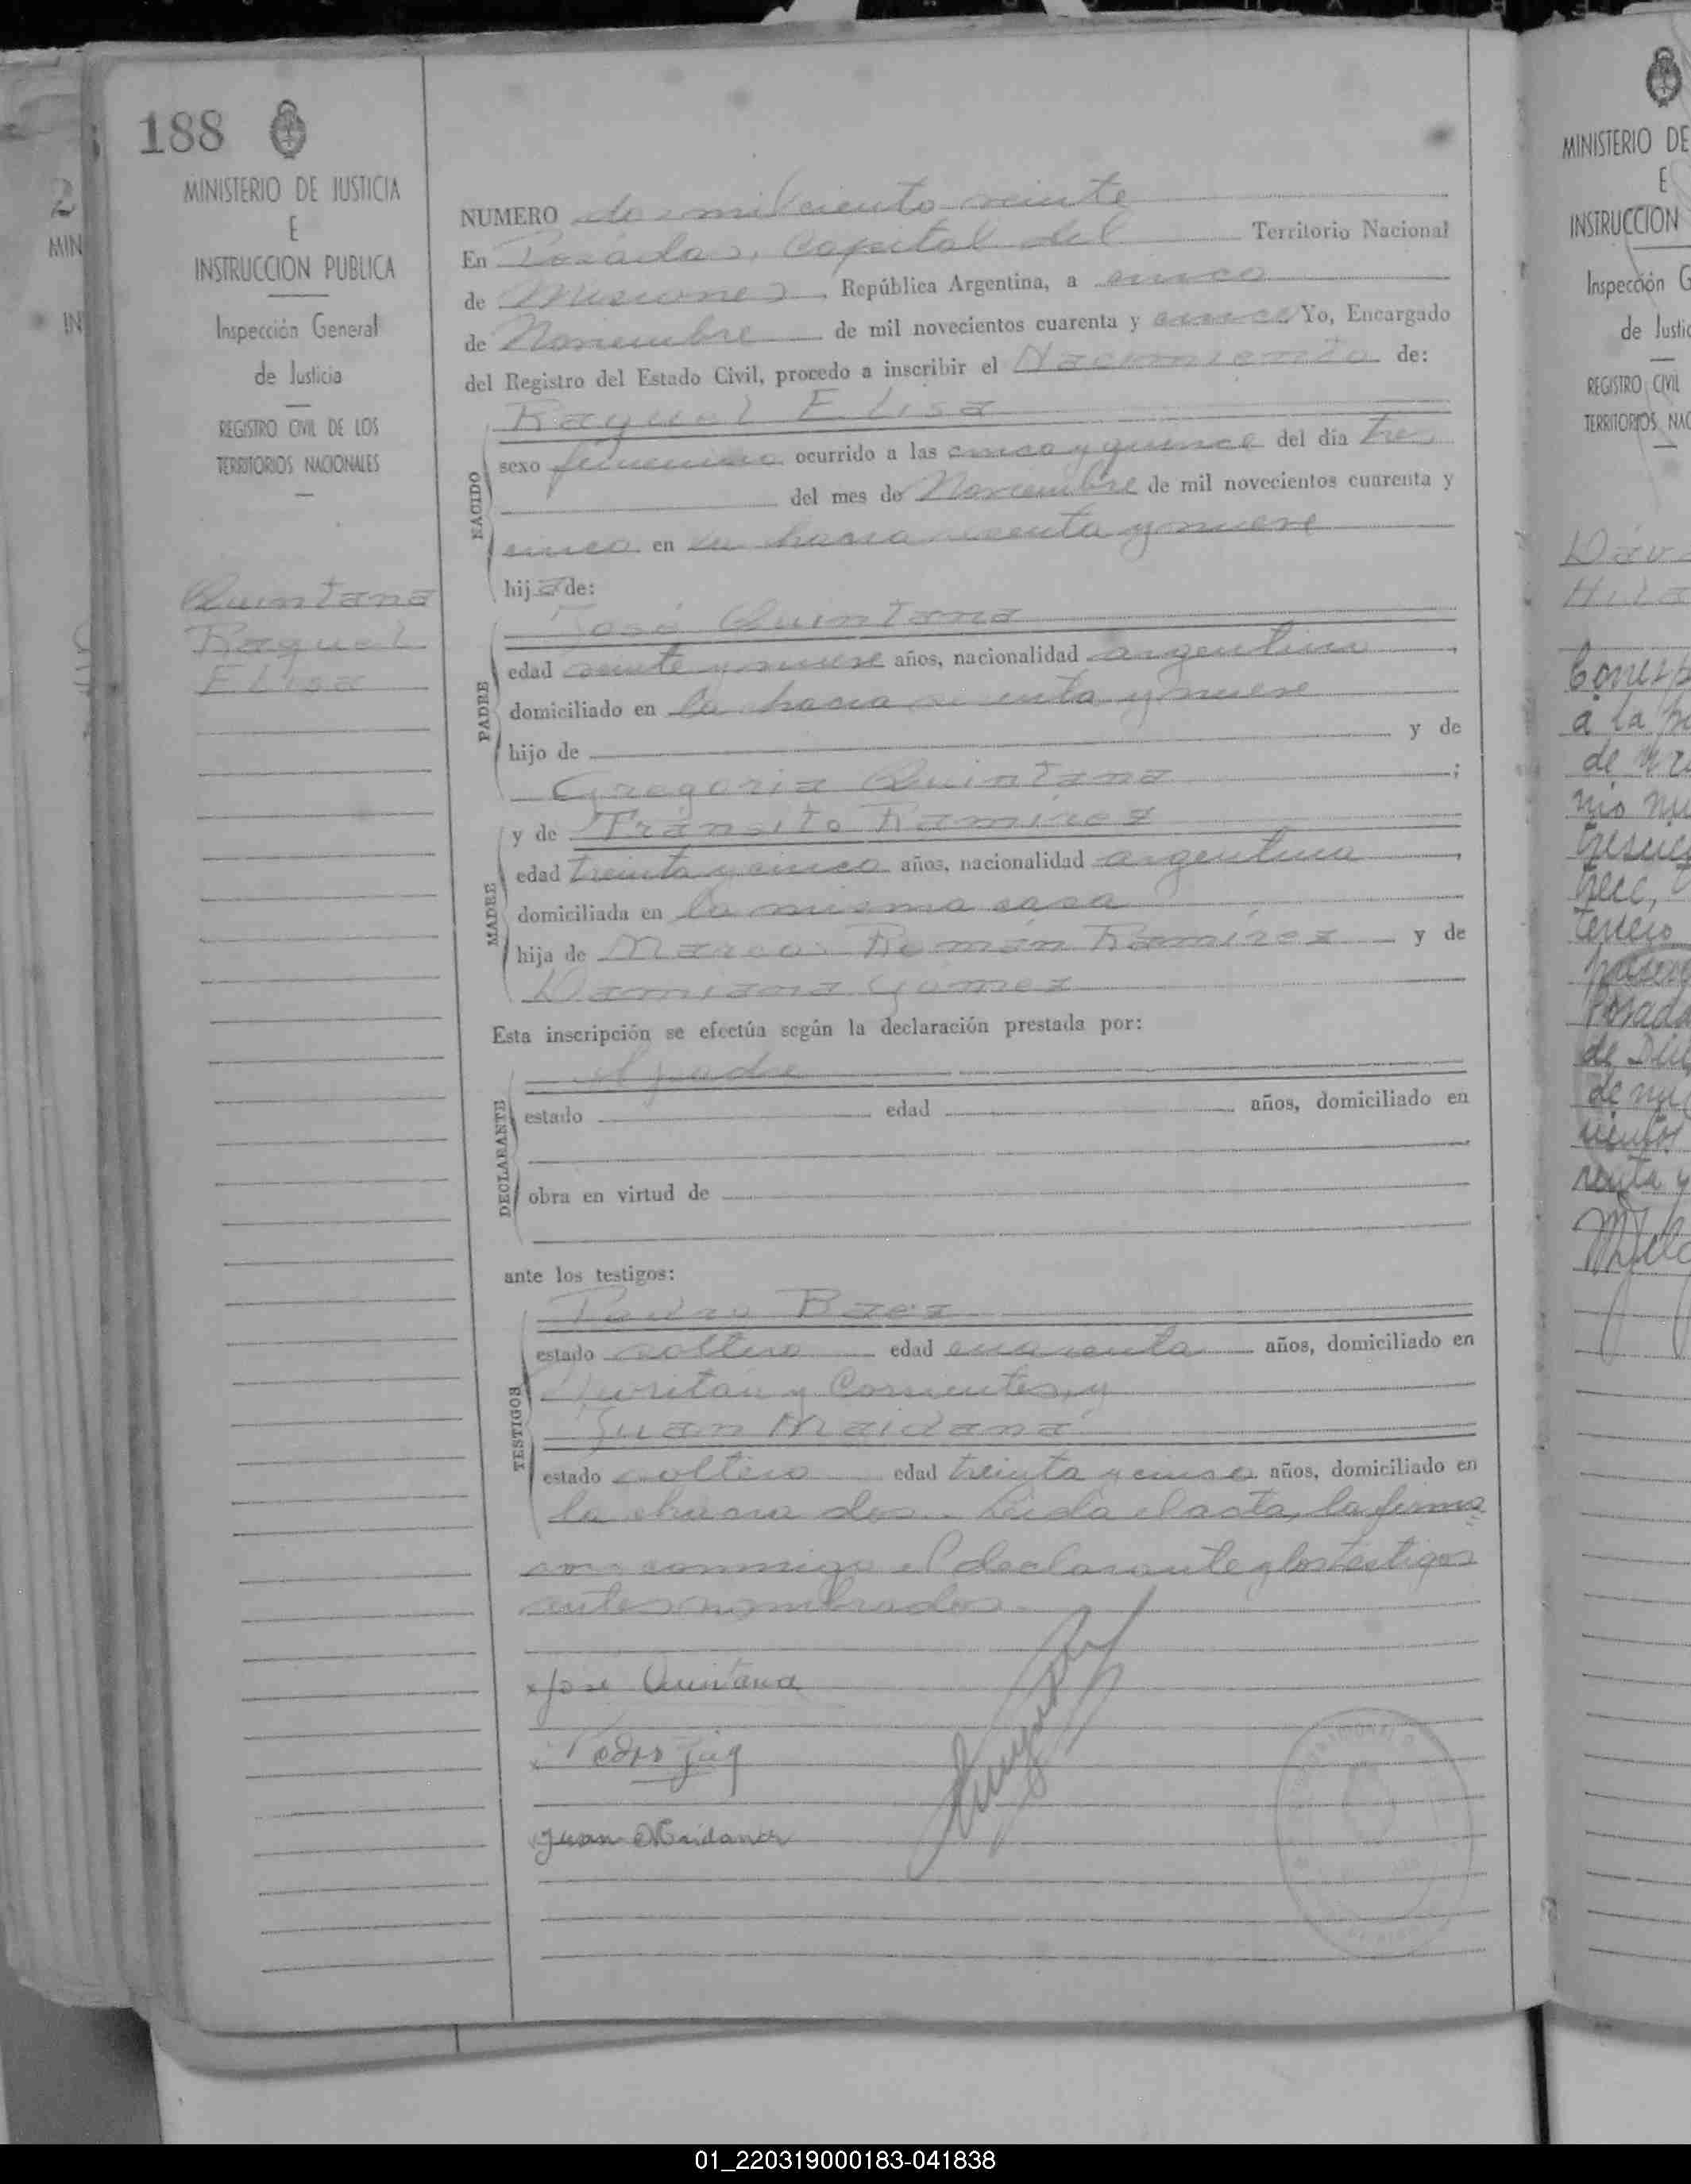 188
MINISTERIO DE JUSTICIA
E
INSTRUCCION PUBLICA
Inspección General
de Justicia
REGISTRO CIVIL DE LOS
TERRITORIOS NACIONALES
Quintana
Raquel
Elisa
NUMERO dos mil ciento veinte
En Posadas, Capital del Territorio Nacional
de Misiones, República Argentina, a cinco
de Noviembre de mil novecientos cuarenta y cinco Yo, Encargado
del Registro del Estado Civil, procedo a inscribir el Nacimiento de:
Raquel Elisa
NACIDO
sexo femenino ocurrido a las cinco y quince del día tres
del mes de Noviembre de mil novecientos cuarenta y
cinco en su chacra y nueve
hija de:
José Quintana
PADRE
edad veinte y nueve años, nacionalidad argentina,
domiciliado en la chacra y nueve
hijo de y de
Gregoria Quintana;
y de Tránsito Ramírez
MADRE
edad treinta y cinco años, nacionalidad argentina,
domiciliada en la misma casa
hija de Marcos Román Ramírez y de
Damiana Gómez
Esta inscripción se efectúa según la declaración prestada por:
el padre
DECLARANTE
estado edad años, domiciliado en
obra en virtud de
ante los testigos:
Pedro Baez
TESTIGOS
estado soltero edad cuarenta años, domiciliado en
y Corrientes, y
Juan Maidana
estado soltero edad treinta y cinco años, domiciliado en
la chacra dos. Leída el acta, la firma
con conmigo el declarante y los testigos
antes nombrados.
Jose Quintana
Pedro
Juan Maidana
MINISTERIO DE
E
INSTRUCCION
Inspección G
de Justic
REGISTRO CIVIL
TERRITORIOS NAC
a la
de
trece,
tercero
Posada
01_220319000183-041838